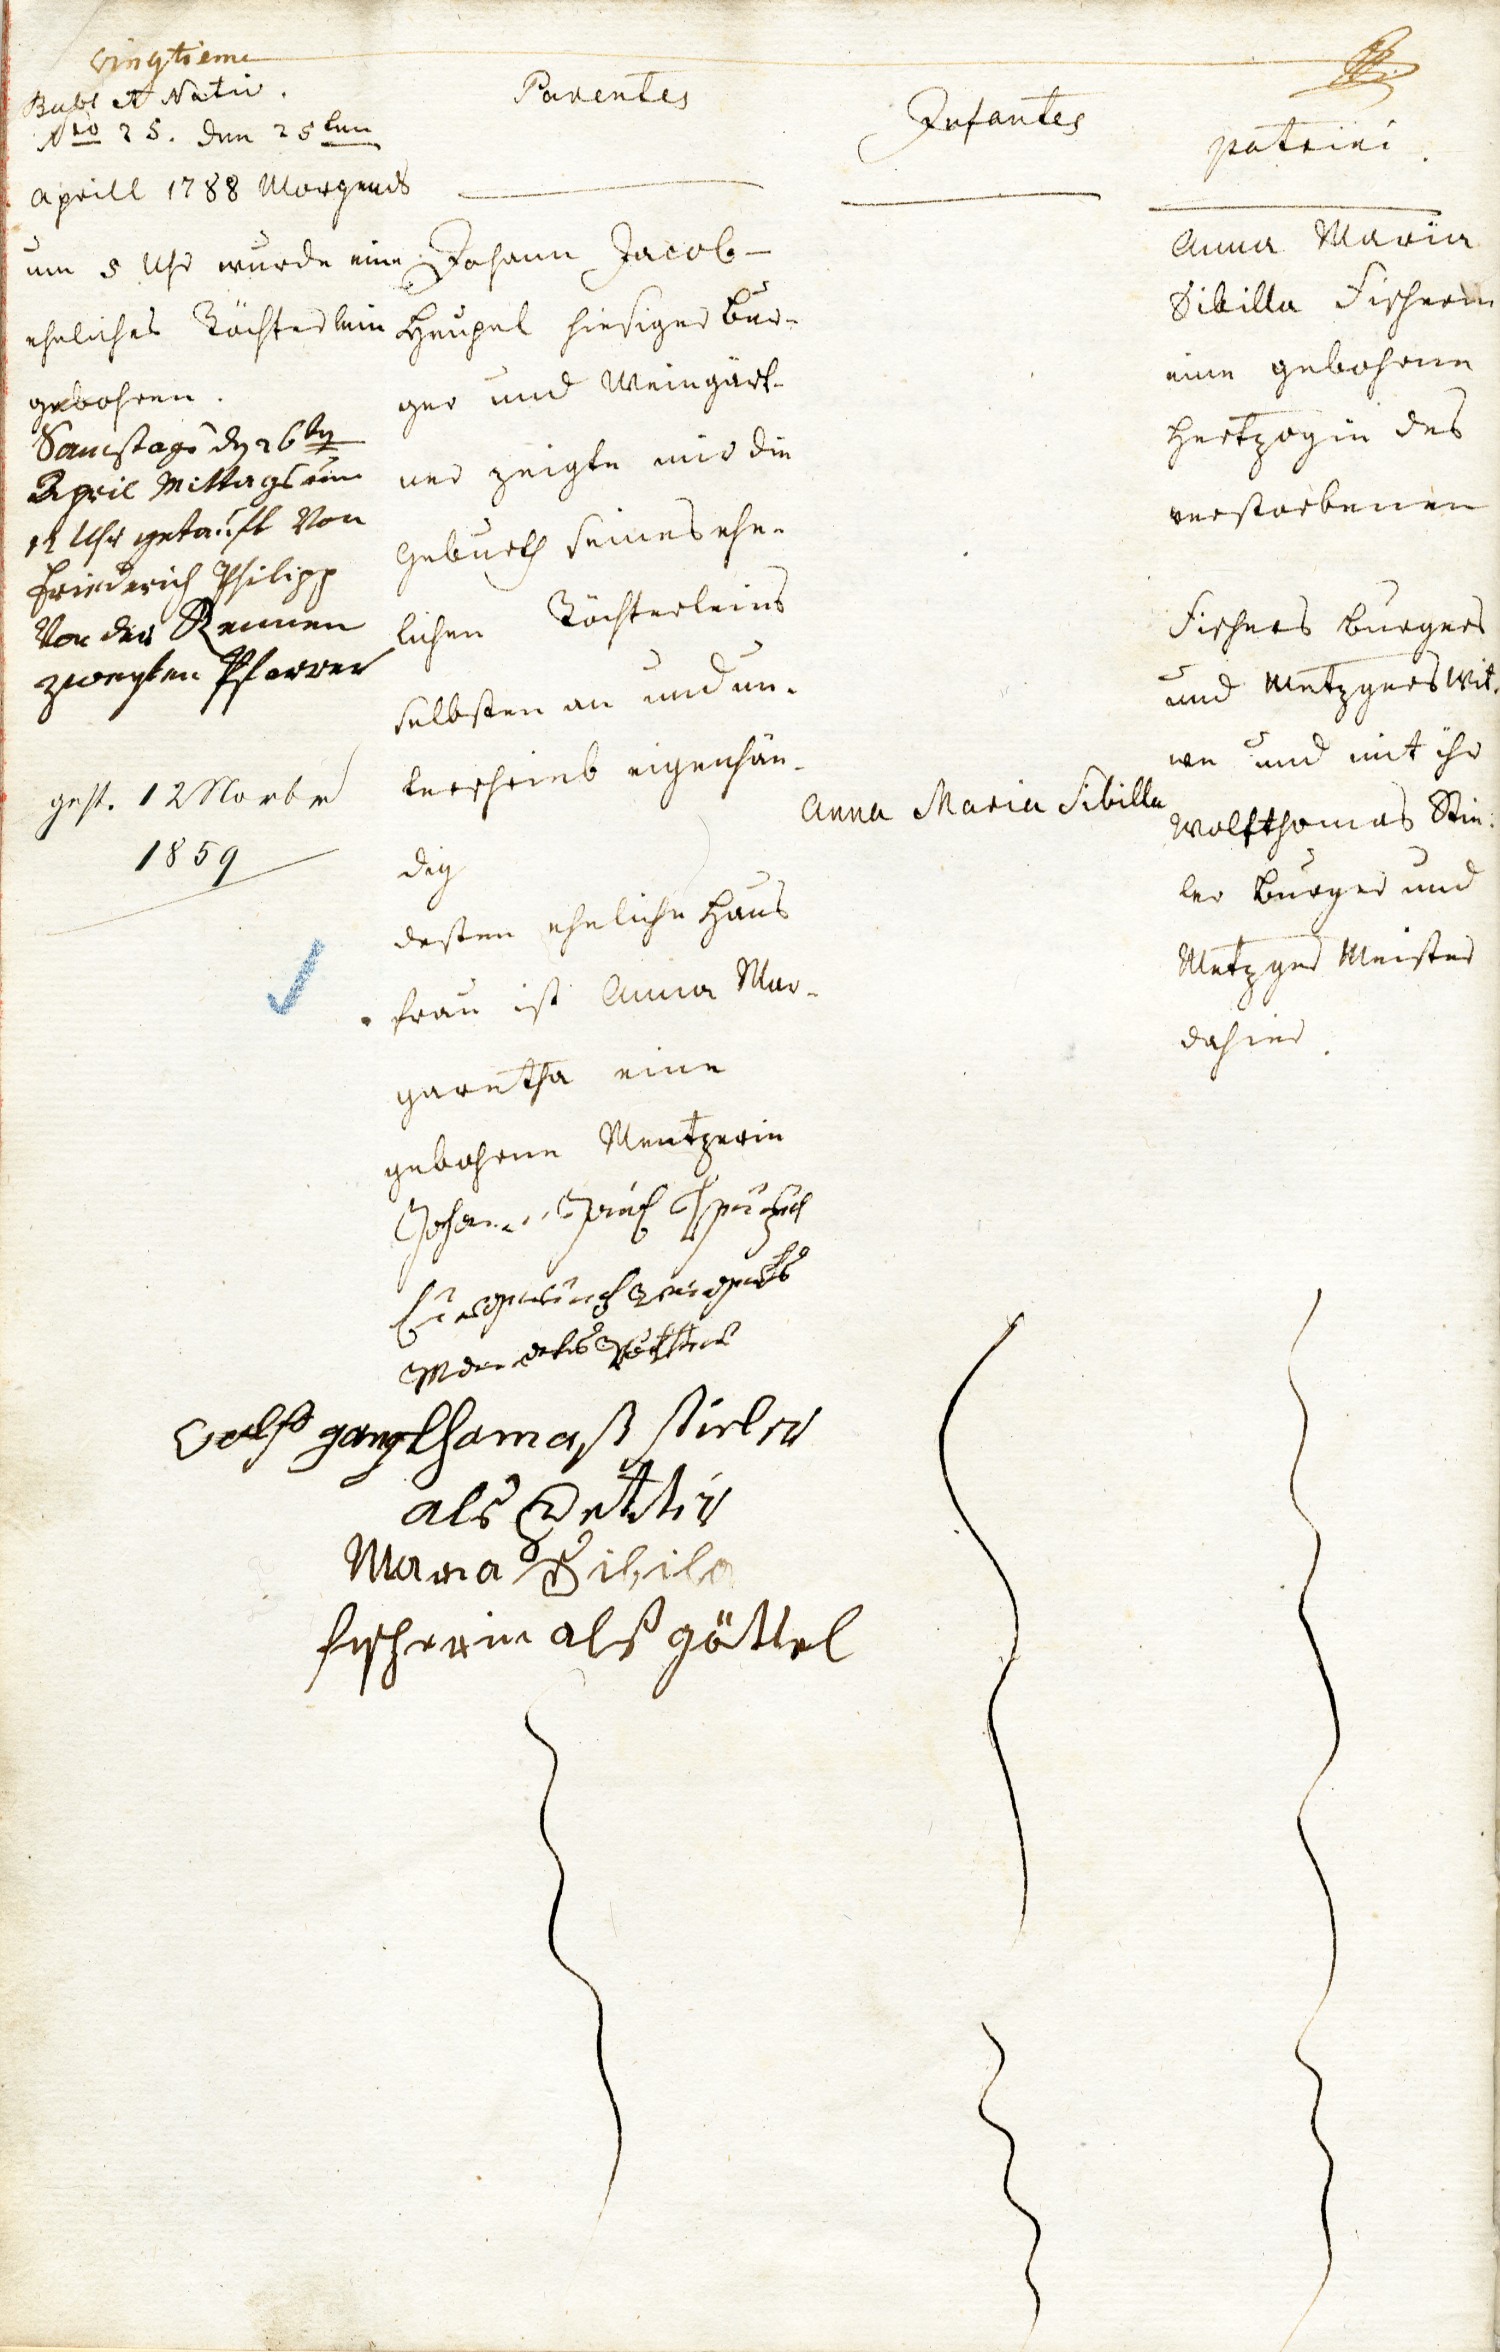 vingtieme
Bapt et Nativ.
Nro 25. den 25ten
Aprill 1788 Morgends
um 5 Uhr wurde eine
eheliches Töchterlein
gebohren.
Samstags den 26ten
April Mittags um
12 Uhr getauft Von
Friederich Philipp
Von der Rennen
zweyten Pfarrer
gest. 12 Novbr
1859
Parentes
Johann Jacob
Heupel hiesiger Bur-
ger und Weingärt-
ner zeigte mir die
Geburth seines ehe-
lichen Töchterleins
selbsten an und un-
terschrieb eigenhän-
dig
dessen eheliche Haus
frau ist Anna Mar-
garetha eine
gebohrne Mentzerin
Wolff gang thomaß stieler
als Petter
Maria Sibila
fischerin als göttel
Infantes
Anna Maria Sibilla
patrini.
Anna Maria
Sibilla Fischerin
eine gebohrne
Hertzogin des
verstorbenen
Fischers burgers
und Metzgers Wit-
we und mit ihr
Wolf thomas Stie-
ler Burger und
Metzger Meister
dahier.